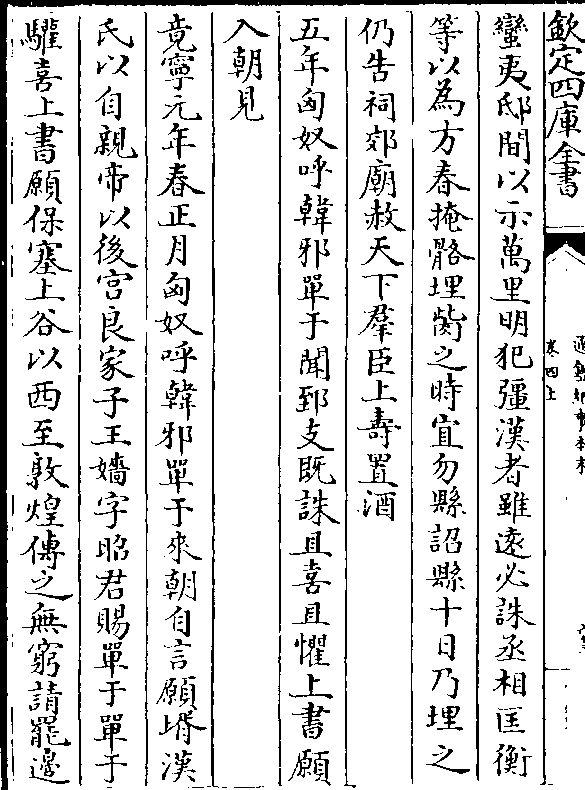 欽定四庫全書
通鑑紀事本末
卷四上
蠻夷邸間以示萬里明犯彊漢者雖遠必誅丞相匡衡
等以為方春掩骼埋胔之時宜勿縣詔縣十日乃埋之
仍告祠郊廟赦天下羣臣上壽置酒
五年匈奴呼韓邪單于聞郅支既誅且喜且懼上書願
入朝見
竟寧元年春正月匈奴呼韓邪單于來朝自言願壻漢
氏以自親帝以後宮良家子王嬙字昭君賜單于單于
驩喜上書願保塞上谷以西至敦煌傳之無窮請罷邊